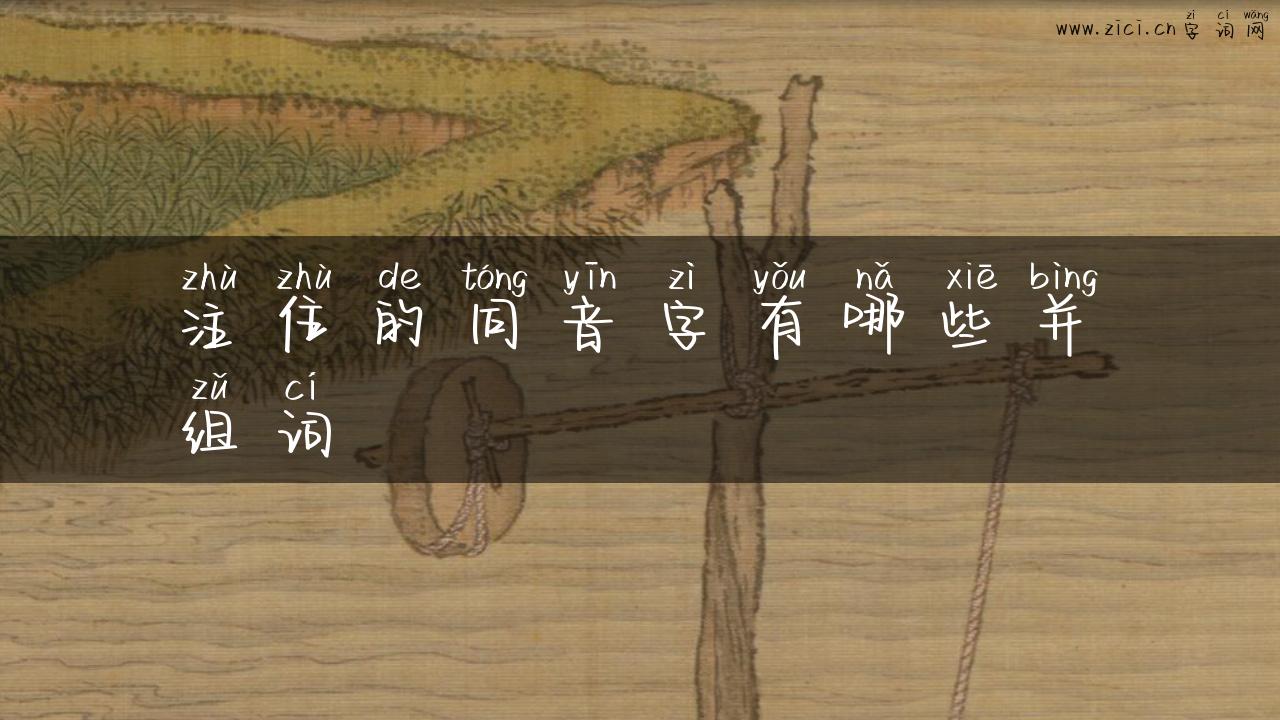 zì cí wǎng
www.zici.cn 字词网
zhù zhù de tóng yīn zì yǒu nǎ xiē bìng
注住的同音字有哪些并
zǔ cí
组词